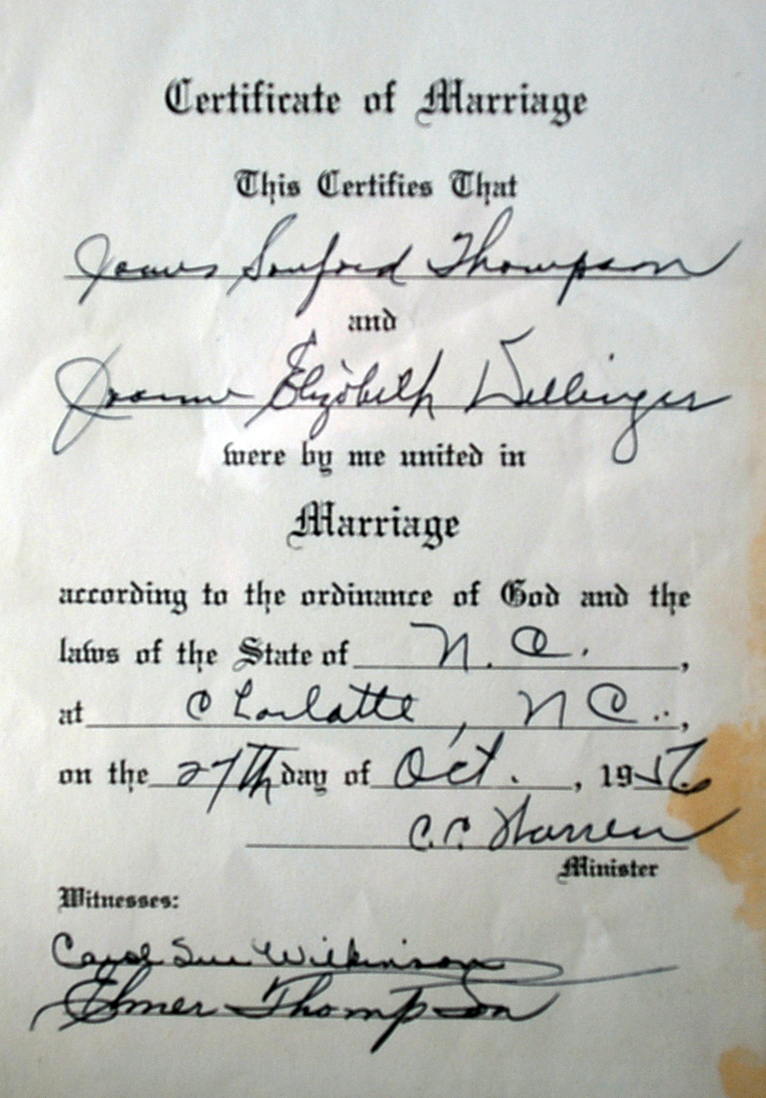 Certificate of Marriage
This Certifies That
James Sanford Thompson
and
Joanne Elizabeth Dellinger
were by me united in
Marriage
according to the ordinance of God and the
laws of the State of N. C. ,
at Charlotte, N C. ,
on the 27th day of Oct. , 1956
C. C. Warren
Minister
Witnesses:
Carol Sue Wilkinson
Elmer Thompson